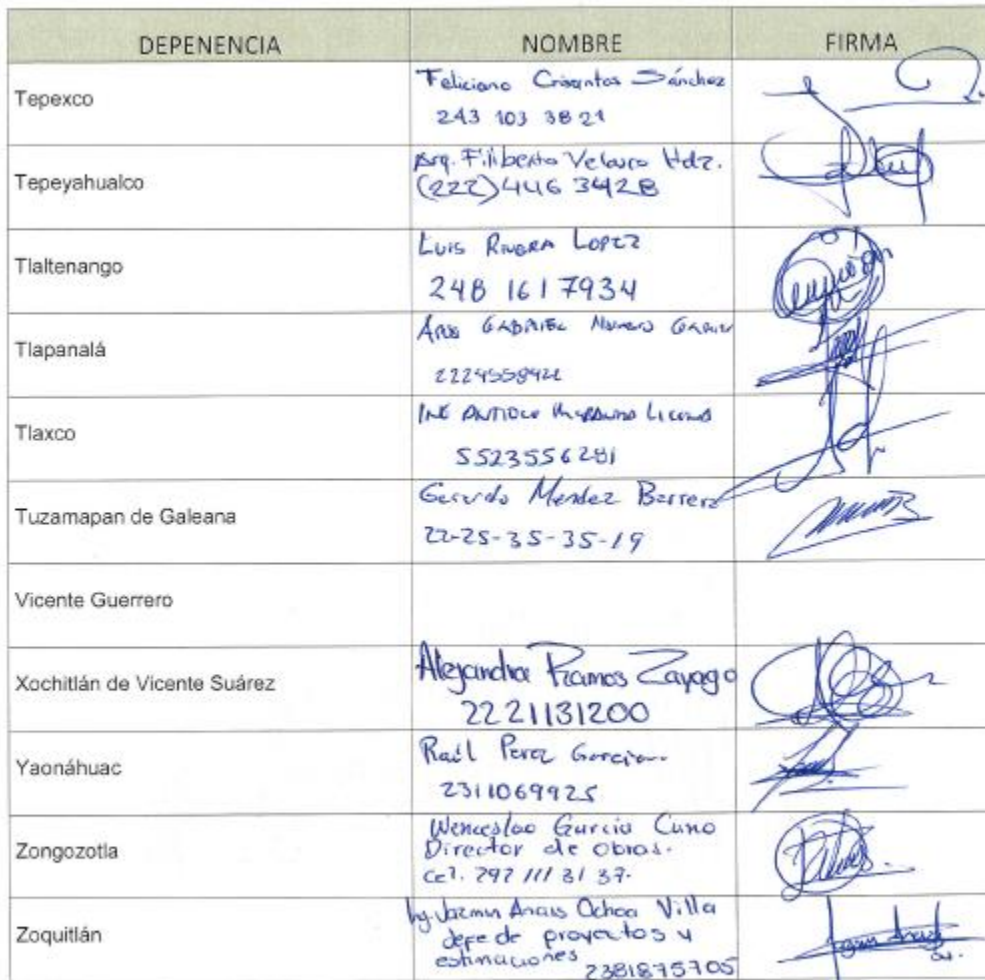 DEPENENCIA NOMBRE FIRMA
Tepexco
Feliciano Crisantos Sánchez
243 103 38 21
Tepeyahualco
Arq. Filiberto Velasco Hdz.
(222) 446 3428
Tlaltenango
LUIS RIVERA LOPEZ
248 161 7934
Tlapanalá
GABRIEL
Tlaxco
5523556281
Tuzamapan de Galeana
Gerardo Mendez Barrera
22-25-35-35-19
Vicente Guerrero
Xochitlán de Vicente Suárez
Alejandra Ramos Zayago
2221131200
Yaonáhuac
Raúl Perez Garcia
2311069925
Zongozotla
Wenceslao Garcia Cano
Director de obras.
Cel. 797 111 31 37.
Zoquitlán
Ing. Jazmin Anais Ochoa Villa
Jefe de proyectos y
estimaciones
2381875705